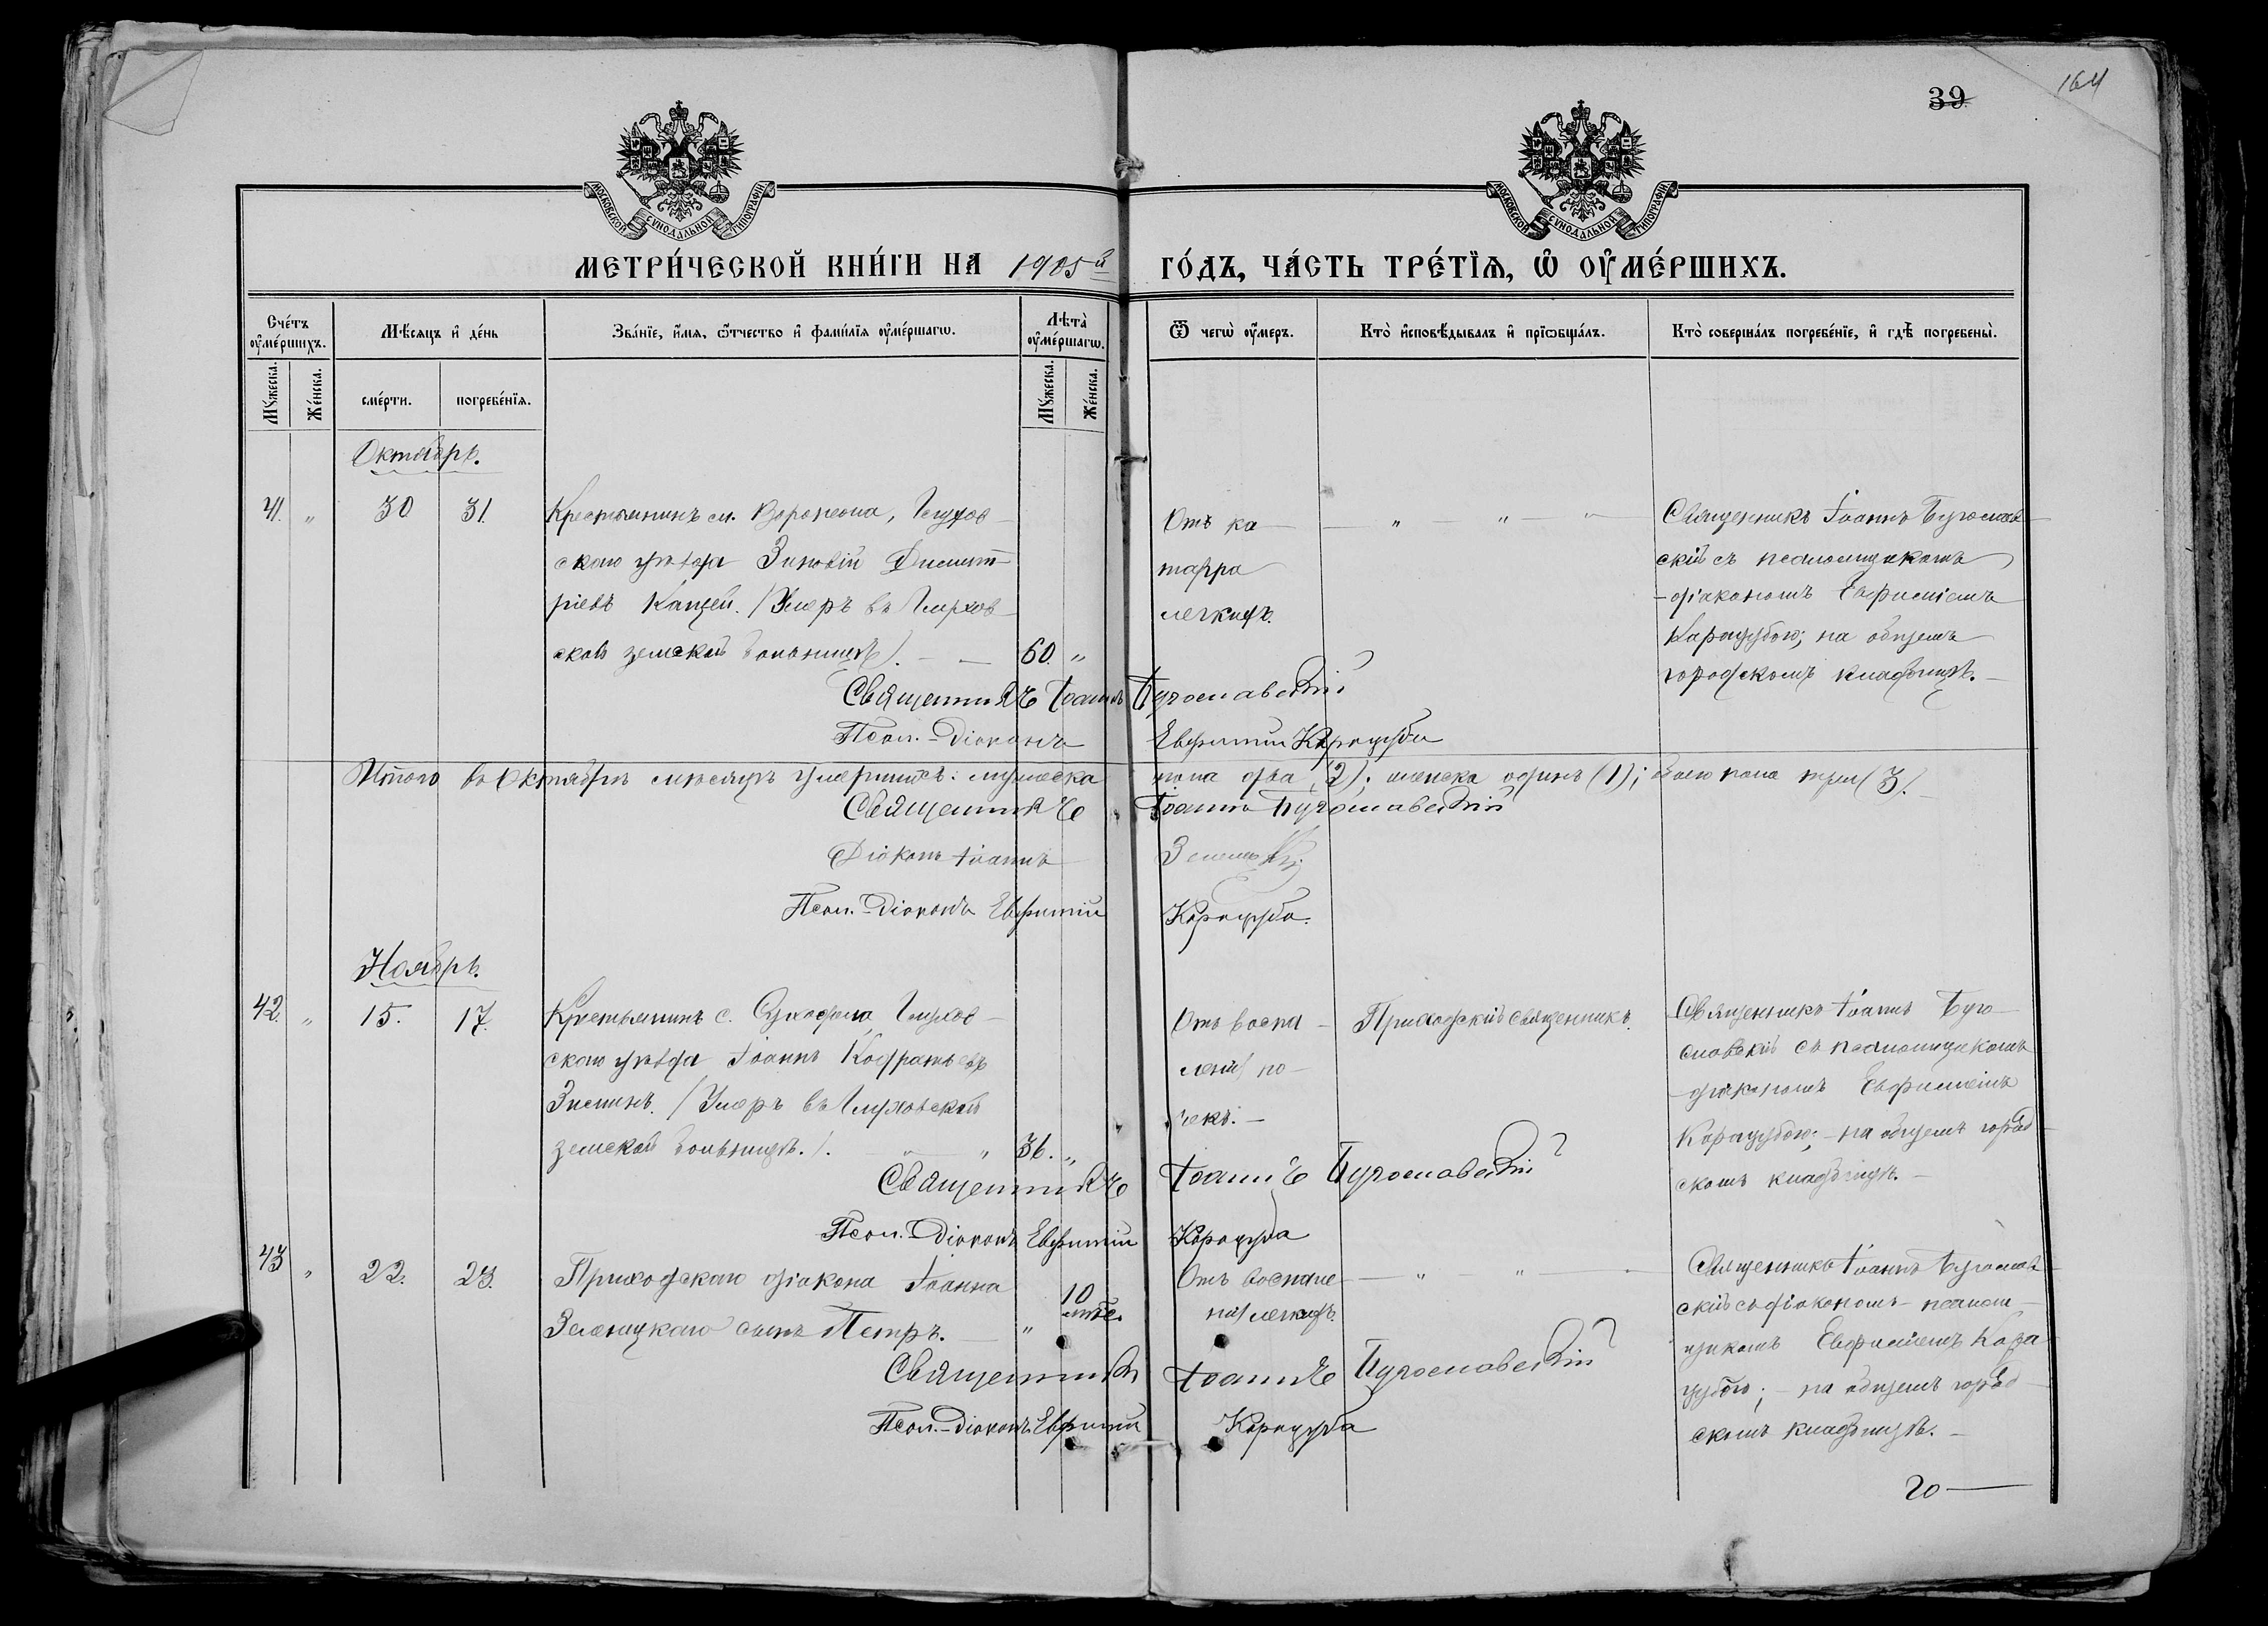 39
164
МОСКОВСКОЙ СУНОДАЛЬНОЙ ТИПОГРАФІИ
МОСКОВСКОЙ СУНОДАЛЬНОЙ ТИПОГРАФІИ
МЕТРИ́ЧЕСКОЙ КНИ́ГИ НА 1905й ГО́ДЪ, ЧА́СТЬ ТРЕ́ТІѦ, Ѡ҆ ОУ҆МЕ́РШИХЪ.
Сче́тъ оу҆ме́ршихъ.
Мѣ́сяцъ и҆ де́нь
Зва́нїе, и҆́мя, ѻ҆́тчество и҆ фами́лїя оу҆ме́ршагѡ.
Лѣ́та оу҆ме́ршагѡ.
Ѿ чегѡ̀ оу҆́меръ.
Кто̀ и҆сповѣ́дывалъ и҆ прїѡбща́лъ.
Кто̀ соверша́лъ погребе́нїе, и҆ гдѣ̀ погребены̀.
Мꙋ́жеска.
Же́нска.
сме́рти.
погребе́нїя.
Мꙋ́жеска.
Же́нска.
Октябрь.
41. " 30 31.
Крестьянинъ сл. Воронежа, Глухов-
скаго уѣзда Зиновій Димит-
ріевъ Кащей. /Умеръ въ Глухов-
ской земской больницѣ/. 60. "
Отъ ка-
тарра
легкихъ.
" " "
Священникъ Іоаннъ Бугослав-
скій съ псаломщикомъ
-діакономъ Евфиміемъ
Карацубою; на общемъ
городскомъ кладбищѣ.
Священникъ Іоаннъ Бугославскій
Псал.-Діаконъ Евфимій Карацуба
Итого въ Октябрѣ мѣсяцѣ умершихъ: мужеска пола два (2); женска одинъ (1); обоего пола три (3).
Священникъ Іоаннъ Бугославскій
Діаконъ Іоаннъ
Псал.-Діаконъ Евфимій Карацуба.
Ноябрь.
42. " 15. 17.
Крестьянинъ с. Глухов-
скаго уѣзда Іоаннъ Кодратьевъ
Зиминъ. /Умеръ въ Глуховской
земской больницѣ./. " " 36. "
Отъ воспа-
ленія по-
чекъ.
Приходскій священникъ.
Священникъ Іоаннъ Буго-
славскій съ псаломщикомъ
-діакономъ Евфиміемъ
Карацубою; - на общемъ город-
скомъ кладбищѣ.
Священникъ Іоаннъ Бугославскій
Псал.-Діаконъ Евфимій Карацуба
43 " 22. 23.
Приходскаго діакона Іоанна
Зеленецкаго сынъ Петръ. "
10 мѣс.
Отъ воспале-
нія легкихъ.
" "
Священникъ Іоаннъ Бугослав-
скій съ діакономъ-псалом-
щикомъ Евфиміемъ Кара-
цубою; - на общемъ город-
скомъ кладбищѣ.
Священникъ Іоаннъ Бугославскій
Псал.-Діаконъ Евфимій Карацуба